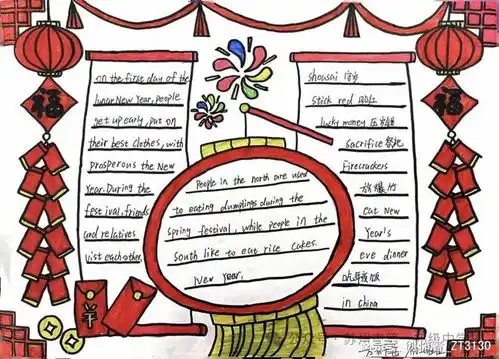 on the first day of the
lunar New Year, people
get up early, put on
their best clothes, with
prosperous the New
Year. During the
festival, friends
and relatives
vist each other.
People in the north are used
to eating dumplings during the
spring festival, while people in the
South like to eat rice cakes.
New Year.
shousai 守岁
stick red 贴红
lucky money 压岁钱
sacrifice 祭祀
Firecrackers
放爆竹
Eat New
Year's
eve dinner
吃年夜饭
in China
福
福
ZT3130